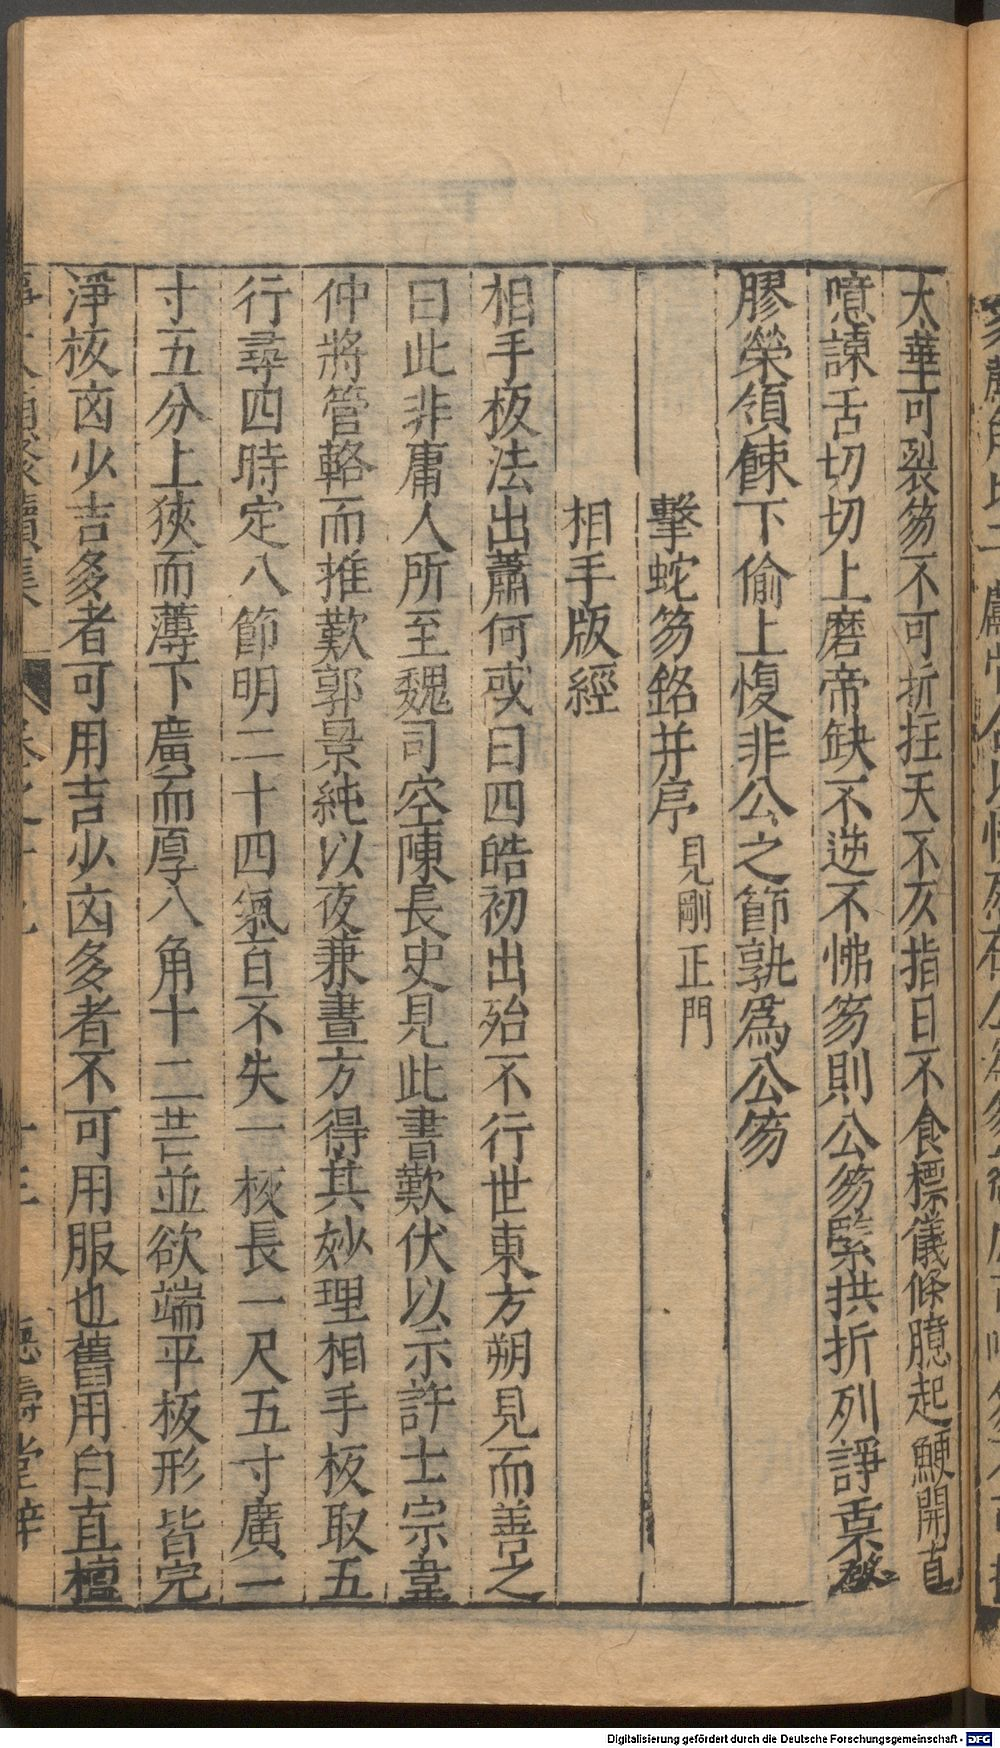 太華可裂笏不可折拄天不灰指日不食標儀條臆起鯁開直
噫諫舌切切上磨帝缺不逆不怫笏則公笏緊拱折列諍
膠榮領餗下偷上愎非公之節孰爲公笏
擊蛇笏銘并序見剛正門
相手版經
相手板法出蕭何或曰四皓初出殆不行世東方朔見而善之
曰此非庸人所至魏司空陳長史見此書歎伏以示許士宗韋
仲將管輅而推歎郭景純以夜兼晝方得其妙理相手板取五
行尋四時定八節明二十四氣百不失一板長一尺五寸廣一
寸五分上狹而薄下廣而厚八角十二芒並欲端平板形皆完
淨板凶少吉多者可用吉少凶多者不可用服也舊用白直檀
Digitalisierung gefördert durch die Deutsche Forschungsgemeinschaft - DFG